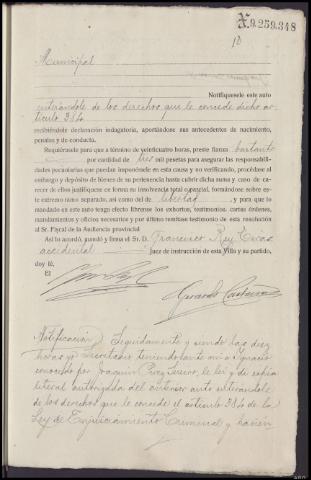 N.9.259.348
10
Municipal
Notifíquesele este auto
enterándole de los derechos que le concede dicho ar-
tículo 384
recibiéndole declaración indagatoria, aportándose sus antecedentes de nacimiento,
penales y de conducta.
Requiérasele para que a término de veinticuatro horas, preste fianza bastante
por cantidad de tres mil pesetas para asegurar las responsabili-
dades pecuniarias que puedan imponérsele en esta causa y no verificando, procédase al
embargo y depósito de bienes de su pertenencia hasta cubrir dicha suma y caso de ca-
recer de ellos justifíquese en forma su insolvencia total o parcial, formándose sobre es-
te extremo ramo separado, así como del de libertad y para que lo
mandado en este auto tenga efecto líbrense los exhortos, testimonios, cartas órdenes,
mandamientos y oficios necesarios y por último remítase testimonio de esta resolución
al Sr. Fiscal de la Audiencia provincial.
Así lo acordó, mandó y firma el Sr. D. Francisco Rey
accidental Juez de instrucción de esta Villa y su partido,
doy fé.
El
Gerardo
Notificación/ Seguidamente y siendo las diez
horas yo Secretario teniendo ante mí a Ignacio
conocido por Joaquín Perez, le leí y di copia
literal autorizada del anterior auto enterándole
de los derechos que le concede el artículo 384 de la
Ley de Enjuiciamiento Criminal y hacien